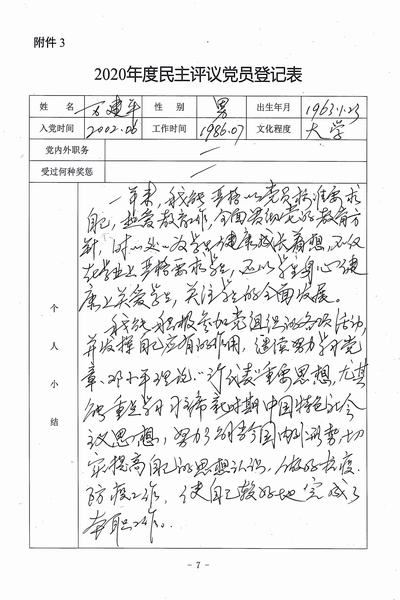 附件 3
2020年度民主评议党员登记表
姓 名 万建平 性 别 男 出生年月 1963.1.23
入党时间 2002.06 工作时间 1986.07 文化程度 大学
党内外职务 一
受过何种奖惩 一
个人小结
一年来，我能严格以党员标准要求
自己，热爱教育工作，全面贯彻党的教育方
针，时时处处为学生健康成长着想，不仅
在学业上严格要求学生，还以学生身心健
康上关爱学生，关注学生的全面发展。
我能积极参加党组织的各项活动，
并发挥自己应有的作用，继续努力学习党
章、邓小平理论、"三个代表"重要思想，尤其
能重点学习习主席新时期中国特色社会
主义思想，努力
切
实提高自己的思想认识，做好抗疫
防疫工作，使自己较好地完成了
本职工作。
- 7 -